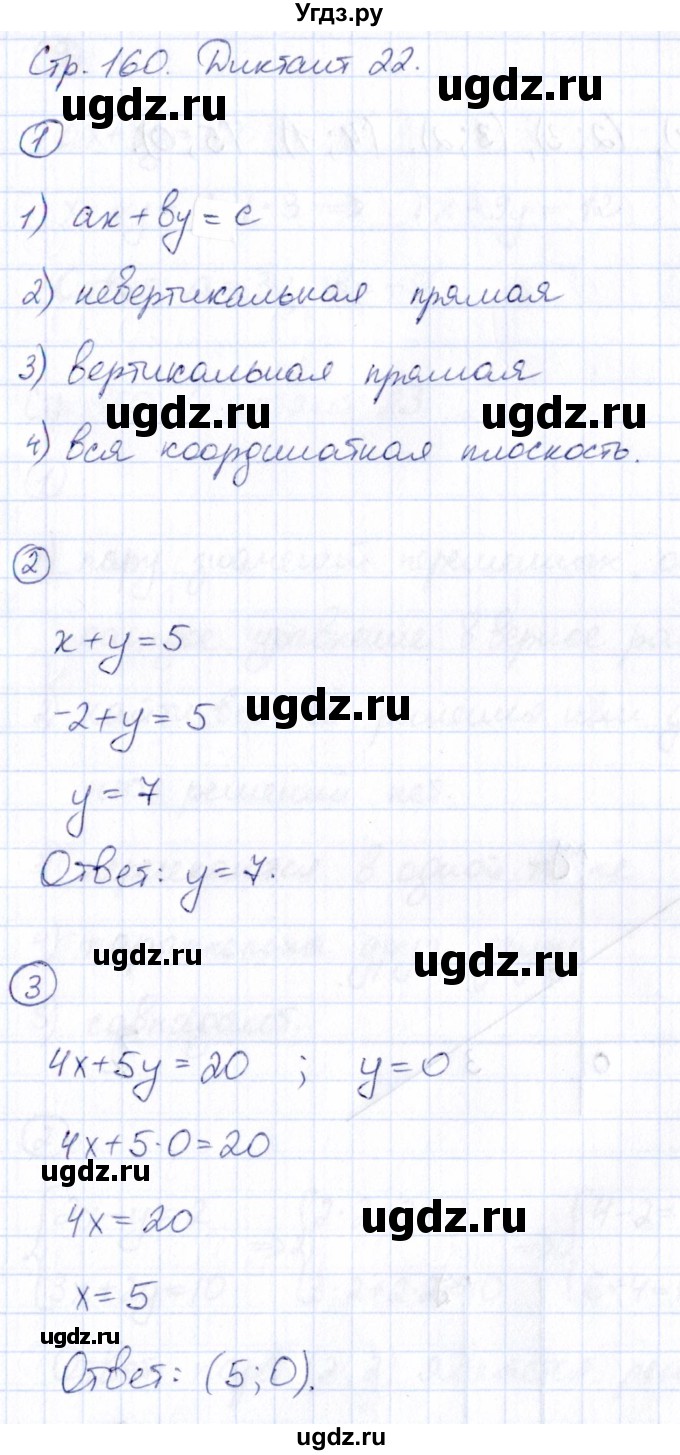 Угдз.ру
Стр. 160. Диктант 22.
ugdz.ru ugdz.ru
1
1) ax + by = c
2) невертикальная прямая
3) вертикальная прямая
ugdz.ru ugdz.ru
4) вся координатная плоскость.
2
x + y = 5
-2 + y = 5
ugdz.ru
y = 7
Ответ: y = 7.
ugdz.ru ugdz.ru
3
4x + 5y = 20 ; y = 0
4x + 5·0 = 20
ugdz.ru
4x = 20
ugdz.ru
x = 5
ugdz.ru
Ответ: (5; 0).
ugdz.ru